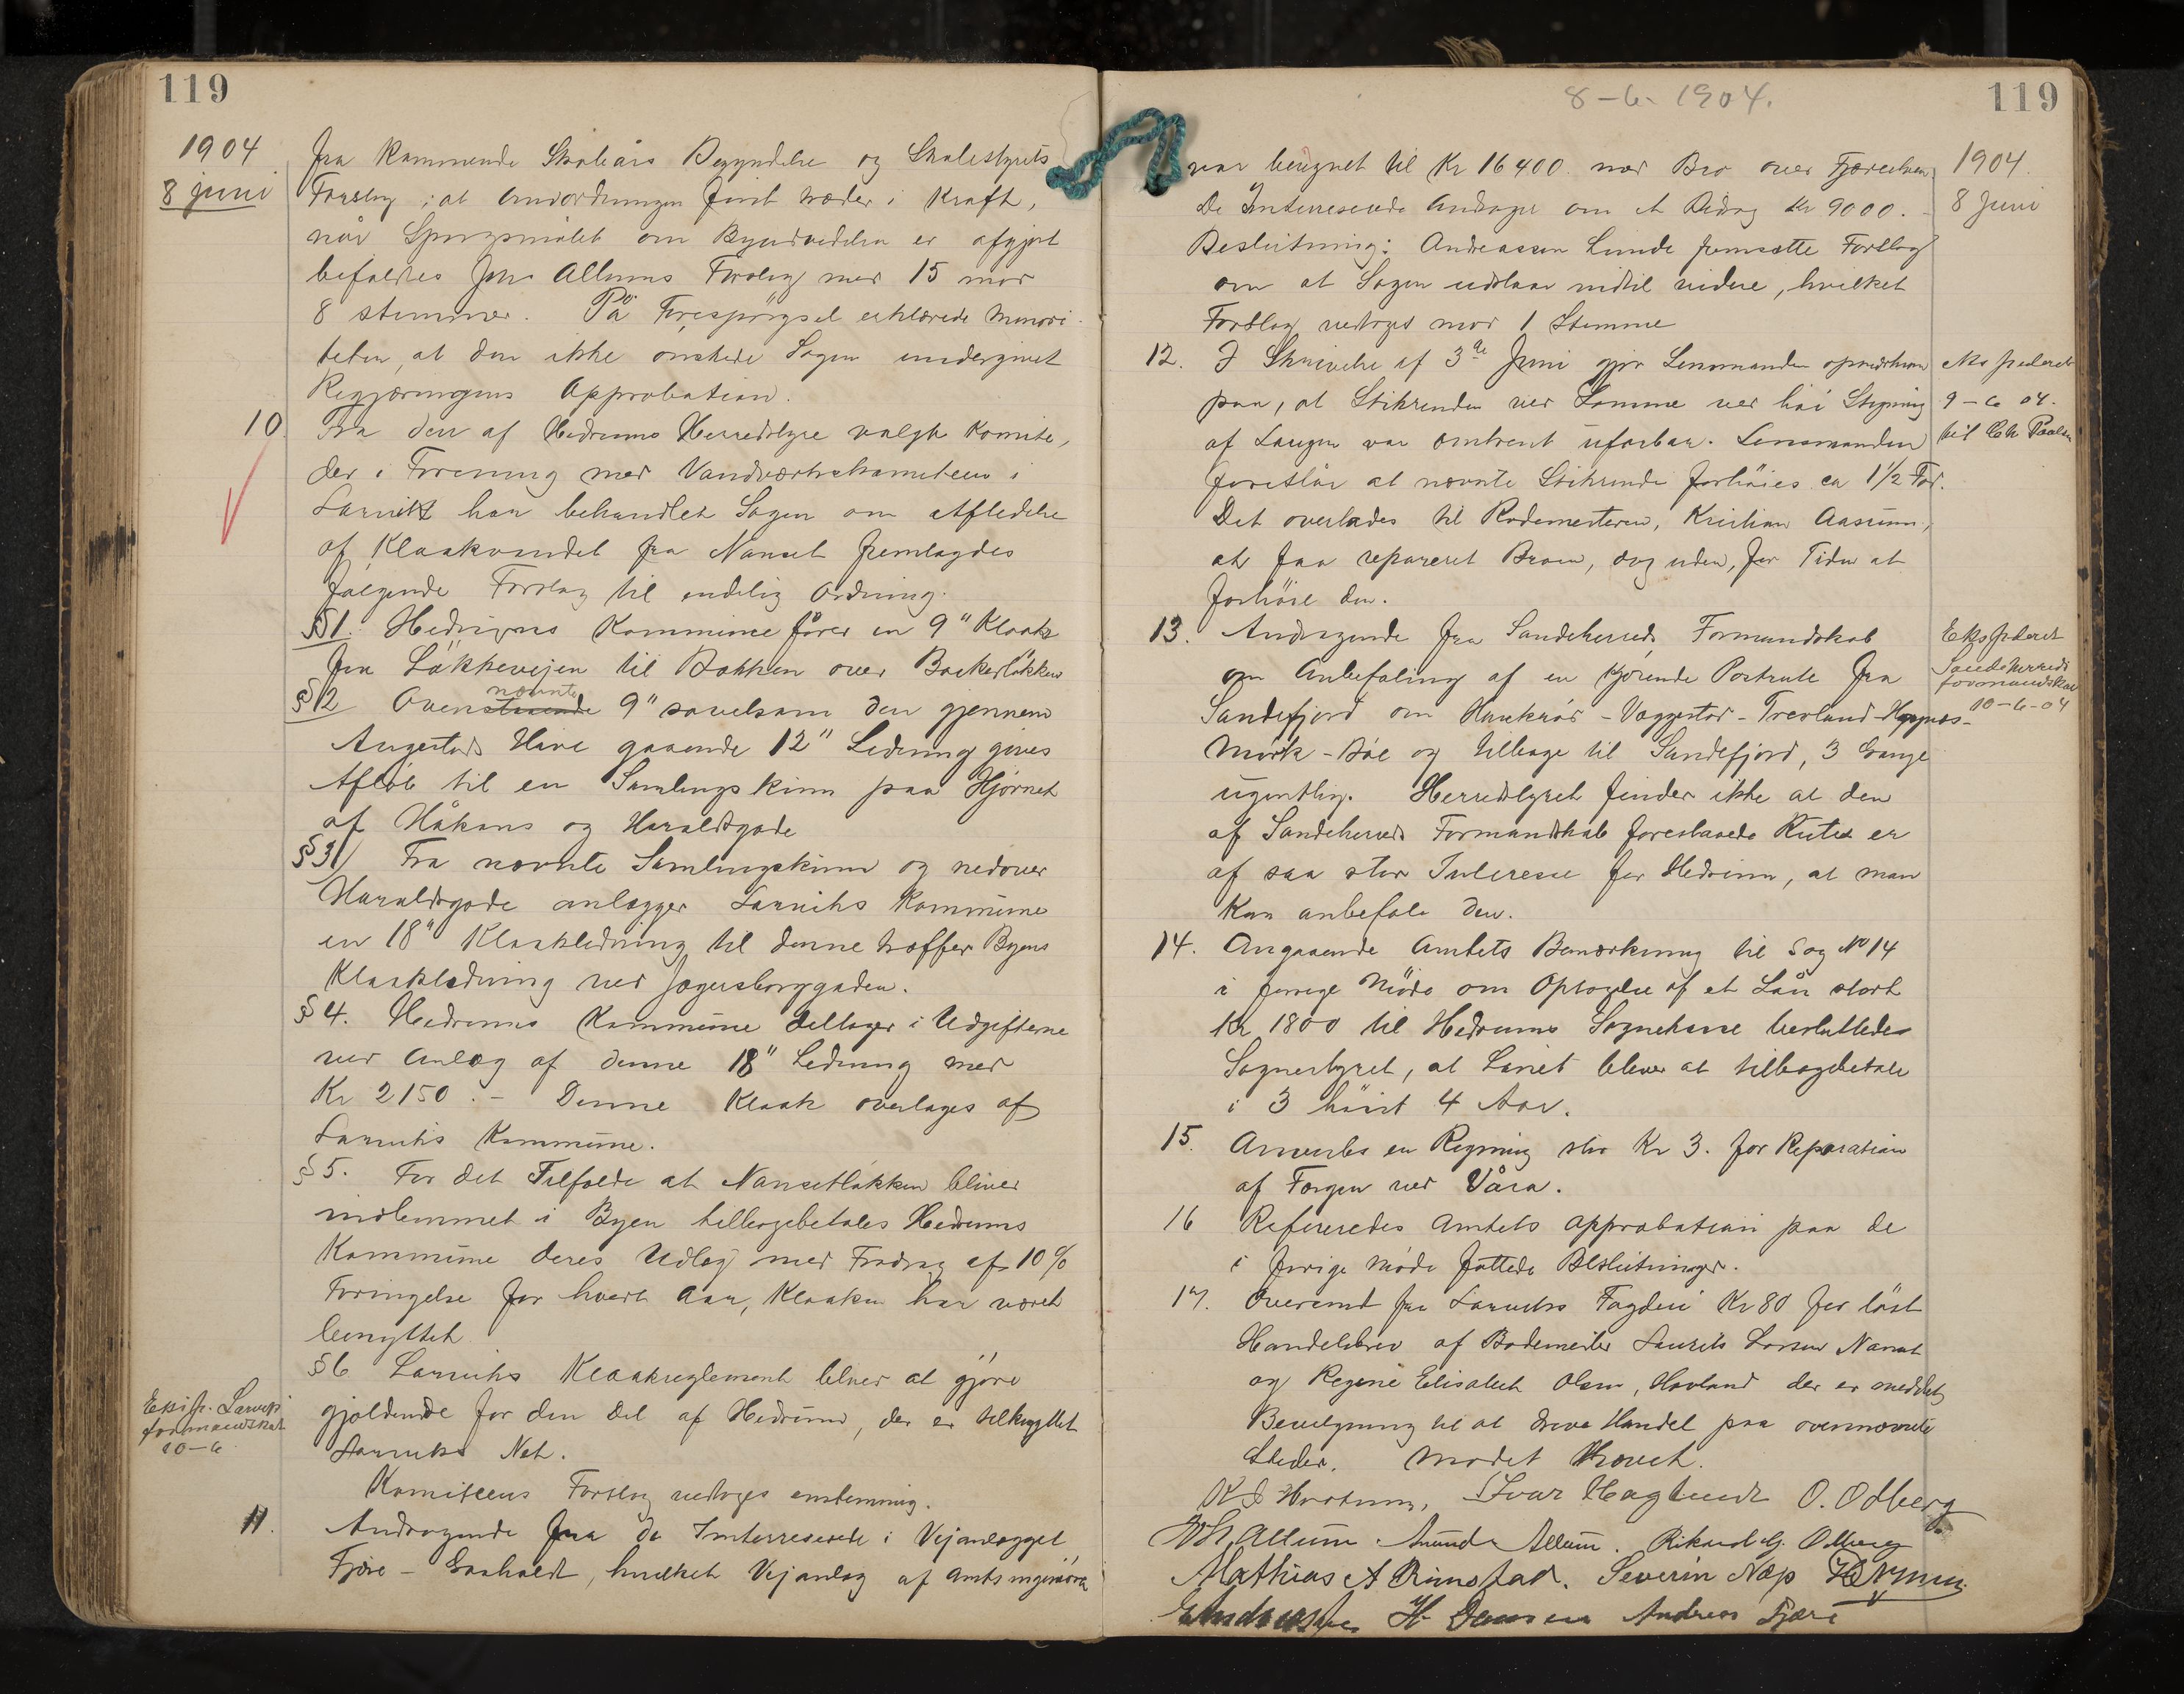 119
1904
8 juni
fra kommende Skoleårs Begyndelse og Skolestyrets
Forslag: at Omordningen först træder i Kraft,
når Spørgsmålet om Byudvidelsen er afgjort
befaldtes Joh. Allums Forslag med 15 mod
8 stemmer. På Forespörgsel erklærede Minori-
teten, at den ikke ønskede Sagen undergivet
Regjæringens Approbation.
10 Fra den af Hedrums Herredstyre valgte Komite,
der i Forening med Vandværkskomiteen i
Larvik har behandlet Sagen om Afledelse
af Kloakvandet fra Nanset fremlagdes
følgende Forslag til endelig Ordning.
§1. Hedrums Kommune fører en 9" Kloak
fra Løkkevejen til Bakken over Bøkkerløkken
§2 Ovennævnte 9" såvelsom den gjennem
Angestads Have gaaende 12" Ledning gives
Afløb til en Samlingskum paa Hjørnet
af Håkons og Haraldsgade
§3 Fra nævnte Samlingskum og nedover
Haraldsgade anlægger Larviks Kommune
en 18" Kloakledning til denne træffer Byens
Kloakledning ved Jægersborggaden.
§4. Hedrums Kommune deltager i Udgifterne
ved Anlæg af denne 18" Ledning med
Kr 2150.- Denne Kloak overtages af
Larviks Kommune.
§5. For det Tilfælde at Nansetløkken bliver
indlemmet i Byen tilbagebetales Hedrums
Kommune deres Udlæg med Fradrag af 10%
Foringelse for hvert Aar, Kloaken har været
benyttet
§6 Larviks Kloakreglement bliver at gjøre
gjældende for den Del af Hedrum, der er tilknyttet
Larviks Net.
Eksp. Larvik
formandskab
10-6
Komiteens Forslag vedtoges enstemmig.
11. Andragende fra de Interreserede i Vejanlægget
Fjære - Gaaholdt, hvilket Vejanlæg af Amtsingeniøren
8-6-1904.
119
1904
8 Juni
var beregnet til Kr 16400 med Bro over Fjæreelven
De Interreserede Andrager om et Bidrag Kr 9000.-
Beslutning: Andreassen Lunde fremsatte Forslag
om at Sagen udstaar indtil videre, hvilket
Forslag vedtoges mod 1 Stemme
12. I Skrivelse af 3de Juni gjør Lensmanden opmærksom
paa, at Stikrenden ved Lamme ved høi Stigning
af Laagen var omtrent ufarbar. Lensmanden
foreslår at nævnte Stikrende forhöies ca 1½ Fod.
Det overlades til Rodemesteren, Kristian Aasrum,
at faa repareret Broen, dog uden, for Tiden at
forhöie den.
Eks pederet
9-6 04.
til Chr Paulsen
13. Andragende fra Sandeherreds Formandskab
om Anbefaling af en kjørende Postrute fra
Sandefjord om Haukerød - Vaggestad - Trevland - Høgnæs-
Mørk - Bøe og tilbage til Sandefjord, 3 Gange
ugentlig. Herredstyret finder ikke at den
af Sandeherreds Formandskab foreslaaede Rute er
af saa stor Interesse for Hedrum, at man
kan anbefale den.
Ekspederet
Sandeherreds
formandskab
10-6-04
14. Angaaende Amtets Bemærkning til Sag No 14
i forrige Møde om Optagelse af et Lån stort
Kr 1800 til Hedrums Sognekasse besluttede
Sognestyret, at Lånet bliver at tilbagebetale
i 3 høist 4 Aar.
15. Anvistes en Regning stor Kr 3. for Reparation
af Færgen ved Våra.
16 Refereredes Amtets Approbation paa de
i forrige Møde fattede Beslutninger.
17. Oversendt fra Larviks Fogderi Kr 80 for løst
Handelsbrev af Bødemester Laurits Larsen Nanset
og Regine Elisabeth Olsen, Hovland der er meddelt
Bevilgning til at drive Handel paa ovennævnte
Steder. Mødet hævet.
Ivar Haglund O. Odberg
Joh Allum. Anund Allum. Rikard G. Odberg
Mathias A Rimstad. Severin Næp
H. Jansen Andreas Fjære